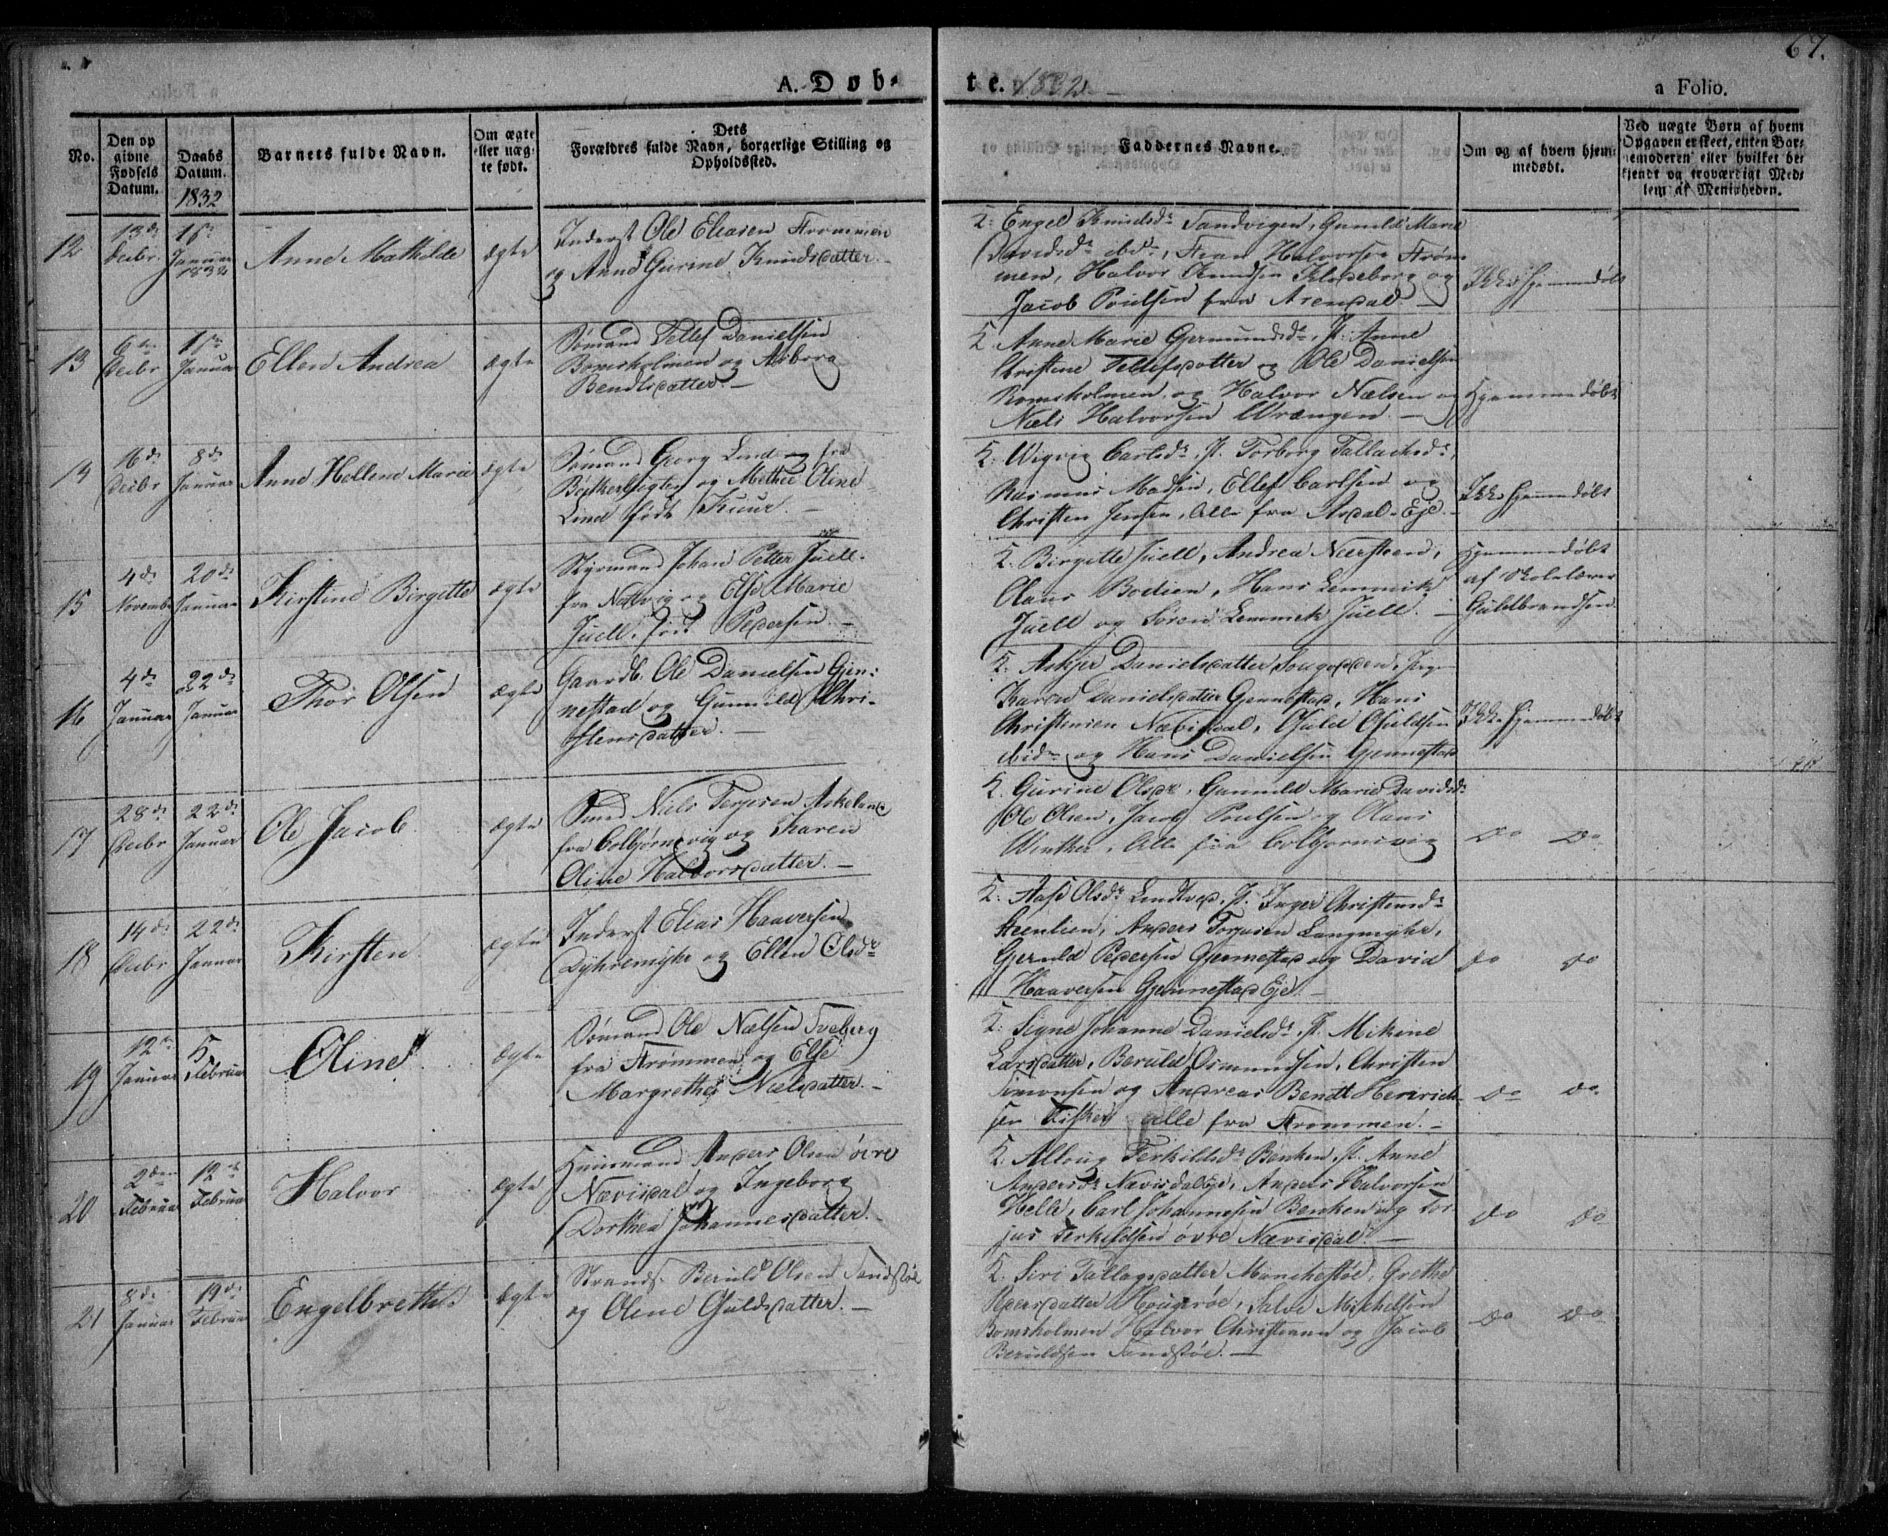 67.
A. Døb-
te. 1832.
a Folio.
No.
Den op
givne
Fødsels
Datum.
Daabs
Datum.
1832
Barnets fulde Navn.
Om ægte
eller uæg-
te født.
Dets
Forældres fulde Navn, borgerlige Stilling og
Opholdssted.
Faddernes Navne.
Om og af hvem hjem-
medøbt.
Ved uægte Børn af hvem
Opgaven er skeet, enten Bar-
nemoderen eller hvilket be
kjendt og troværdigt Med-
lem af Menigheden.
12
13de
Decbr
15de
Januar
1832
Anne Mathilde
ægte
Inderst Ole Eliasen Strømmen
og Anne Gurine Knudsdatter.
K: Engel Knudsdr Sandvigen, Gunild Marie
Davidsdr ibidm, Halvorsen Strøm
men, Halvor Knudsen Kloxeborg og
Jacob Poulsen fra Arendal.
Ikke hjemmedøbt
13
6te
Decbr
15de
Januar
Ellen Andrea
ægte
Sømand Tellef Danielsen
Bomsholmen og Asborg
Bendtsdatter.
K. Anne Marie Gjermundsdr, P. Anne
Christine Tellefsdatter og Ole Danielsen
Bomsholmen, og Halvor Nielsen og
Niels Halvorsen Wrængen.
Hjemmedøbt
14
16de
Decbr
8de
Januar
Anne Hellene Marie
ægte
Sømand Georg Lind og fra
og Methee Oline
Lind født Kuur.
K: Carlsdr, P. Torborg Tallachsdr,
Rasmus Madsen, Ellef Carlsen og
Christen Jensen, Alle fra Eje.
Ikke hjemmedøbt
15
4de
Novembr
20de
Januar
Kirstine Birgette
ægte
Styrmand Johan Petter Juell
fra Nattvig og Else Marie
Juell, født Pedersen.
K. Birgitte Juell, Andrea Næersteen,
Claus Boeien, Hans Lemmick
Juell og Søren Lemmick Juell.
Hjemmedøbt
af Skolelærer
Guldbrandsen.
16
4de
Januar
22de
Januar
Thor Olsen
ægte
Gaardb. Ole Danielsen Gjen-
nestad og Gunnild Chri-
stensdatter.
K. Danielsdatter
Karen Danielsdatter Gjennestad, Hans
Christensen Nævisdal, Osuld Osuldsen
ibidm og Hans Danielsen Gjennestad
Ikke hjemmedøbt
17
28de
Decbr
22de
Januar
Ole Jacob
ægte
Niels Terjesen
fra Colbjørnsvig og Karen
Oline Halvorsdatter.
K. Gurine Olsdr, Gunnild Marie Davidsdr
Ole Olsen, Jacob Poulsen og Claus
Winther, Alle fra Colbjørnsvig
do do
18
14de
Decbr
22de
Januar
Kirsten
ægte
Inderst Elias Haaversen
Dyhremyhr og Ellen Olsdr
K: Aase Olsdr, P. Inger Christensdr
Steenlien, Anders Torjusen Langmyhr,
Gjeruld Pedersen Gjennestad og David
Haaversen Gjennestad Eje.
do do
19
12te
Januar
5
Februar
Oline
ægte
Sømand Ole Nielsen Tveberg
fra Strømmen og Else
Margrethe Nielsdatter.
K: Signe Johanne Danielsdr, P. Mikine
Larsdatter, Beruld Osmundsen, Christen
Simonsen og Andreas Bendt Henrich-
sen Fisker alle fra Strømmen.
do do
20
2den
Februar
12te
Februar
Halvor
ægte
Huusmand Anders Olsen øvre
Nævisdal og Ingeborg
Dorthea Johannesdatter.
K. Terkildsdr Benken, P. Anne
Andersdr Nævisdal, Anders Halvorsen
Helle, Carl Johannesen Benken og Tor
jus Terkildsen øvre Nævisdal.
do do
21
8de
Januar
19de
Februar
Engelbrethe
ægte
Strands. Beruld Olsen Sandstøe
og Olene Osuldsdatter.
K. Siri Tallagsdatter, Grethe
Salve Michelsen
Bomsholmen Halvor Christiansen og Jacob
Beruldsen Sandstøe.
do do